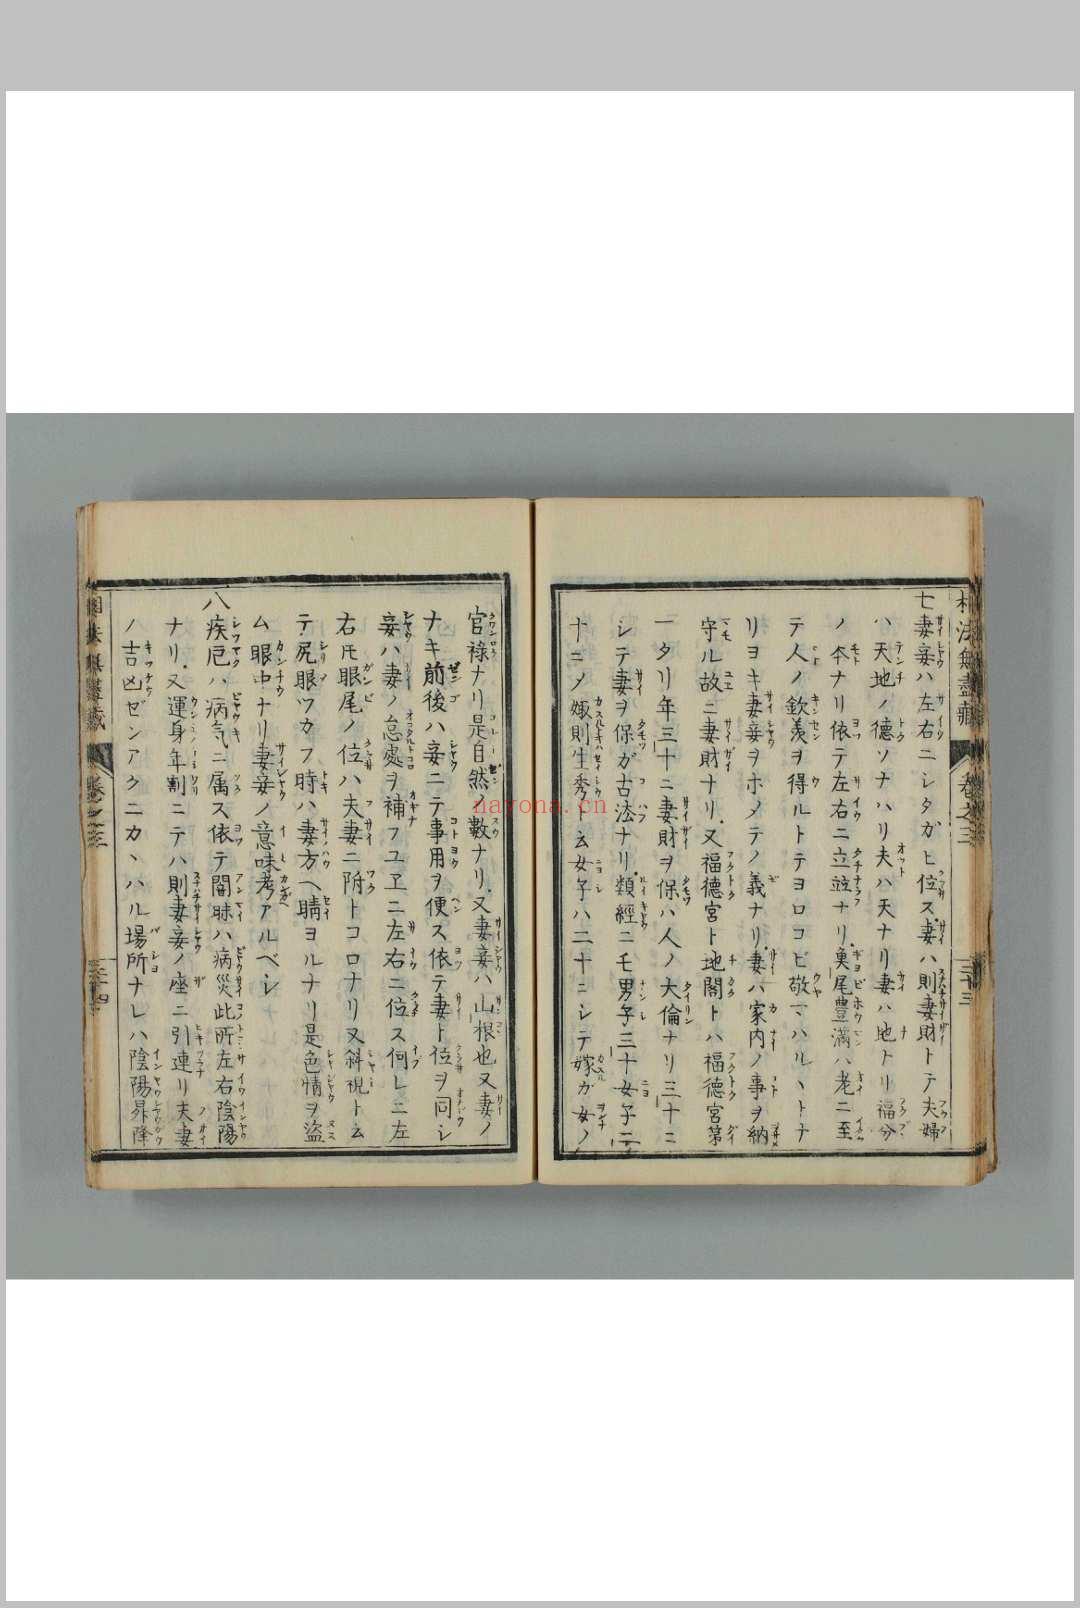 相法無盡蔵 巻之三 二十三
七妻妾ハ左右ニシタガヒ位ス妻ハ則妻財トテ夫婦
ハ天地ノ徳ソナハリ夫ハ天ナリ妻ハ地トリ福分
ノ本ナリ依テ左右ニ立竝ナリ奥尾豊満ハ老ニ至
テ人ノ欽羨ヲ得ルトテヨロコビ敬マハルヽトナ
リヨキ妻妾ヲホメテノ義ナリ妻ハ家内ノ事ヲ納
守ル故ニ妻財ナリ又福德宮ト地閣トハ福德宮第
一タリ年三十ニ妻財ヲ保ハ人ノ大倫ナリ三十ニ
シテ妻ヲ保ガ古法ナリ類經ニモ男子三十女子二
十ニノ娵則生秀ト云女子ハ二十ニシテ嫁ガ女ノ
官禄ナリ是自然ノ數ナリ又妻妾ハ山根也又妻ノ
ナキ前後ハ妾ニテ事用ヲ便ス依テ妻ト位ヲ同シ
妾ハ妻ノ怠處ヲ補フユヱニ左右ニ位ス何レニ左
右氏眼尾ノ位ハ夫妻ニ附トコロナリ又斜視ト云
テ尻眼ツカフ時ハ妻方ヘ睛ヨルナリ是色情ヲ盗
ム眼中ナリ妻妾ノ意味考アルベシ
八疾厄ハ病気ニ属ス依テ闇昧ハ病災此所左右陰陽
ナリ又運身年割ニテハ則妻妾ノ座ニ引連リ夫妻
ノ吉凶ゼンアクニカヽハル場所ナレハ陰陽昇降
相法無盡蔵 巻之三 二十四
nayona.cn